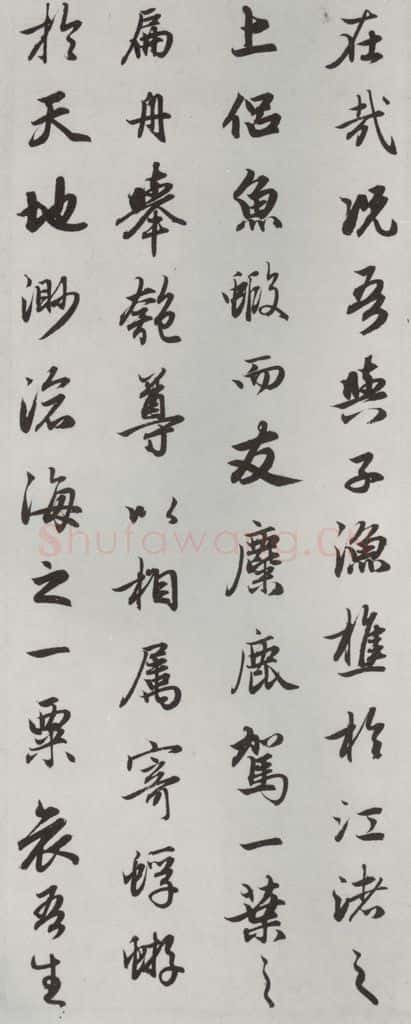 在哉況吾與子漁樵於江渚之
上侶魚蝦而友麋鹿駕一葉之
扁舟舉匏尊以相属寄蜉蝣
於天地渺滄海之一粟哀吾生
Shufawang.cn